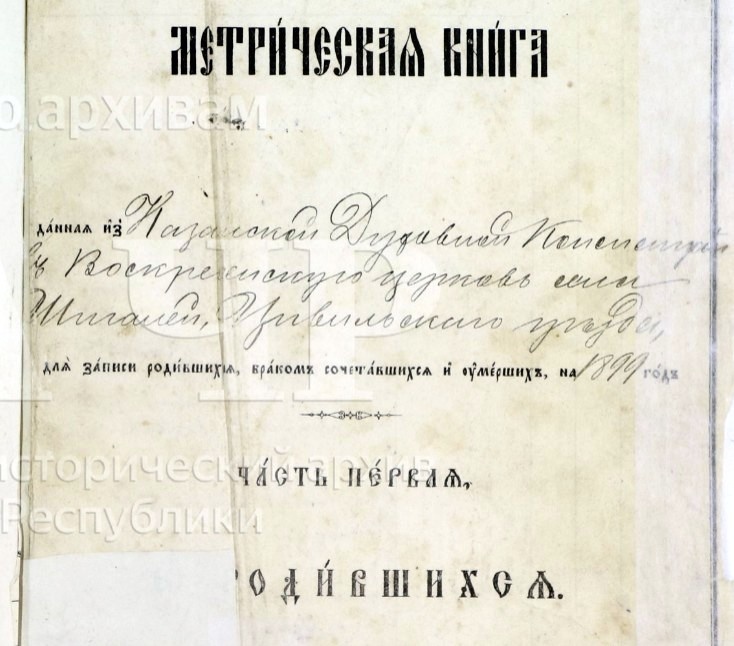 МЕТРИ́ЧЕСКАѦ КНИ́ГА
о архивам
да́нная и҆з̾ Казанской Духовной Консисторіи
въ Воскресенскую церковь села
Шигалей, Цивильскаго уѣзда,
для̀ за́писи роди́вшихся, бра́комъ сочета́вшихся и҆ ᲂу҆ме́ршихъ, на 1899 го́дъ
ЧР
исторический архив
ЧА́СТЬ ПЕ́РВАѦ,
Республики
РОДИ́ВШИХСѦ.